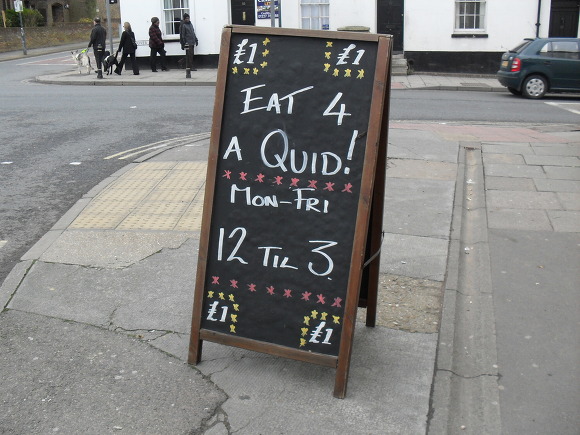 £1 £1
EAT 4
A QUID!
MON-FRI
12 TIL 3.
£1 £1